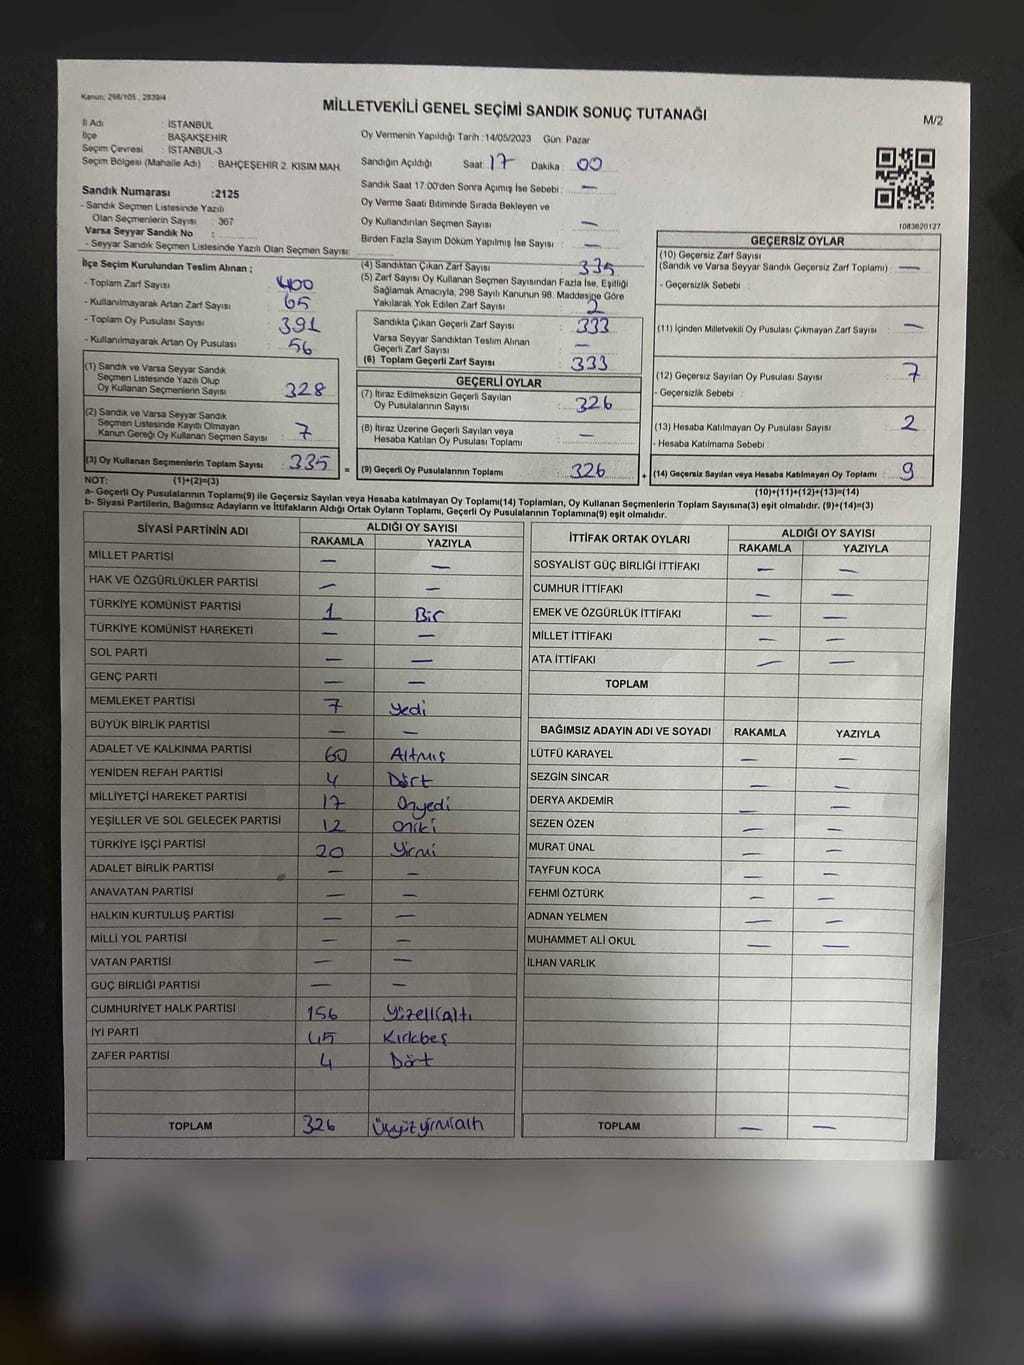 Kanun: 298/105 , 2839/4
MİLLETVEKİLİ GENEL SEÇİMİ SANDIK SONUÇ TUTANAĞI
M/2
İl Adı : İSTANBUL
İlçe : BAŞAKŞEHİR
Seçim Çevresi : İSTANBUL-3
Seçim Bölgesi (Mahalle Adı) : BAHÇEŞEHİR 2. KISIM MAH
Sandık Numarası :2125
- Sandık Seçmen Listesinde Yazılı
Olan Seçmenlerin Sayısı : 367
Varsa Seyyar Sandık No :
- Seyyar Sandık Seçmen Listesinde Yazılı Olan Seçmen Sayısı:
Oy Vermenin Yapıldığı Tarih :14/05/2023 Gün: Pazar
Sandığın Açıldığı Saat: 17 Dakika : 00
Sandık Saat 17:00'den Sonra Açımış İse Sebebi : —
Oy Verme Saati Bitiminde Sırada Bekleyen ve
Oy Kullandırılan Seçmen Sayısı : —
Birden Fazla Sayım Döküm Yapılmış İse Sayısı : —
1083620127
İlçe Seçim Kurulundan Teslim Alınan ;
- Toplam Zarf Sayısı : 400
- Kullanılmayarak Artan Zarf Sayısı : 65
- Toplam Oy Pusulası Sayısı : 391
- Kullanılmayarak Artan Oy Pusulası : 56
(1) Sandık ve Varsa Seyyar Sandık
Seçmen Listesinde Yazılı Olup
Oy Kullanan Seçmenlerin Sayısı : 328
(2) Sandık ve Varsa Seyyar Sandık
Seçmen Listesinde Kayıtlı Olmayan
Kanun Gereği Oy Kullanan Seçmen Sayısı : 7
(3) Oy Kullanan Seçmenlerin Toplam Sayısı : 335
(4) Sandıktan Çıkan Zarf Sayısı : 335
(5) Zarf Sayısı Oy Kullanan Seçmen Sayısından Fazla İse, Eşitliği
Sağlamak Amacıyla, 298 Sayılı Kanunun 98. Maddesine Göre
Yakılarak Yok Edilen Zarf Sayısı : 2
Sandıkta Çıkan Geçerli Zarf Sayısı : 333
Varsa Seyyar Sandıktan Teslim Alınan
Geçerli Zarf Sayısı : —
(6) Toplam Geçerli Zarf Sayısı : 333
GEÇERLİ OYLAR
(7) İtiraz Edilmeksizin Geçerli Sayılan
Oy Pusulalarının Sayısı : 326
(8) İtiraz Üzerine Geçerli Sayılan veya
Hesaba Katılan Oy Pusulası Toplamı : —
= (9) Geçerli Oy Pusulalarının Toplamı : 326
GEÇERSİZ OYLAR
(10) Geçersiz Zarf Sayısı
(Sandık ve Varsa Seyyar Sandık Geçersiz Zarf Toplamı) : —
- Geçersizlik Sebebi :
(11) İçinden Milletvekili Oy Pusulası Çıkmayan Zarf Sayısı : —
(12) Geçersiz Sayılan Oy Pusulası Sayısı : 7
- Geçersizlik Sebebi :
(13) Hesaba Katılmayan Oy Pusulası Sayısı : 2
- Hesaba Katılmama Sebebi :
+ (14) Geçersiz Sayılan veya Hesaba Katılmayan Oy Toplamı : 9
NOT: (1)+(2)=(3)
(10)+(11)+(12)+(13)=(14)
a- Geçerli Oy Pusulalarının Toplamı(9) ile Geçersiz Sayılan veya Hesaba katılmayan Oy Toplamı(14) Toplamları, Oy Kullanan Seçmenlerin Toplam Sayısına(3) eşit olmalıdır. (9)+(14)=(3)
b- Siyasi Partilerin, Bağımsız Adayların ve İttifakların Aldığı Ortak Oyların Toplamı, Geçerli Oy Pusulalarının Toplamına(9) eşit olmalıdır.
SİYASİ PARTİNİN ADI ALDIĞI OY SAYISI
RAKAMLA YAZIYLA
MİLLET PARTİSİ — —
HAK VE ÖZGÜRLÜKLER PARTİSİ — —
TÜRKİYE KOMÜNİST PARTİSİ 1 Bir
TÜRKİYE KOMÜNİST HAREKETİ — —
SOL PARTİ — —
GENÇ PARTİ — —
MEMLEKET PARTİSİ 7 yedi
BÜYÜK BİRLİK PARTİSİ — —
ADALET VE KALKINMA PARTİSİ 60 Altmış
YENİDEN REFAH PARTİSİ 4 Dört
MİLLİYETÇİ HAREKET PARTİSİ 17 Onyedi
YEŞİLLER VE SOL GELECEK PARTİSİ 12 Oniki
TÜRKİYE İŞÇİ PARTİSİ 20 Yirmi
ADALET BİRLİK PARTİSİ — —
ANAVATAN PARTİSİ — —
HALKIN KURTULUŞ PARTİSİ — —
MİLLİ YOL PARTİSİ — —
VATAN PARTİSİ — —
GÜÇ BİRLİĞİ PARTİSİ — —
CUMHURİYET HALK PARTİSİ 156 Yüzellialtı
İYİ PARTİ 45 Kırkbeş
ZAFER PARTİSİ 4 Dört
TOPLAM 326 Üçyüzyirmialtı
İTTİFAK ORTAK OYLARI ALDIĞI OY SAYISI
RAKAMLA YAZIYLA
SOSYALİST GÜÇ BİRLİĞİ İTTİFAKI — —
CUMHUR İTTİFAKI — —
EMEK VE ÖZGÜRLÜK İTTİFAKI — —
MİLLET İTTİFAKI — —
ATA İTTİFAKI — —
TOPLAM
BAĞIMSIZ ADAYIN ADI VE SOYADI RAKAMLA YAZIYLA
LÜTFÜ KARAYEL — —
SEZGİN SİNCAR — —
DERYA AKDEMİR — —
SEZEN ÖZEN — —
MURAT ÜNAL — —
TAYFUN KOCA — —
FEHMİ ÖZTÜRK — —
ADNAN YELMEN — —
MUHAMMET ALİ OKUL — —
İLHAN VARLIK
TOPLAM — —